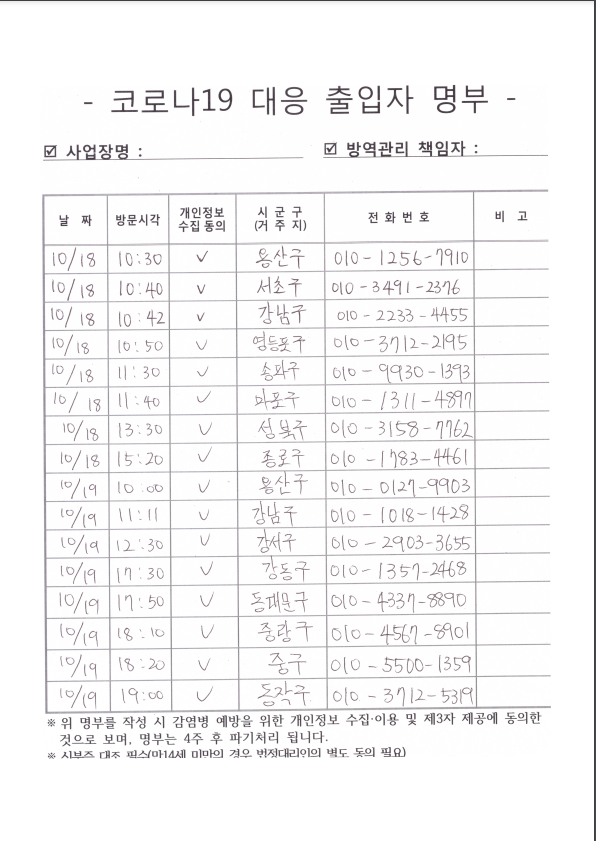 - 코로나19 대응 출입자 명부 -
☑ 사업장명 : ☑ 방역관리 책임자 :
날 짜 방문시각 개인정보 수집 동의 시 군 구 (거 주 지) 전 화 번 호 비 고
10/18 10:30 ✓ 용산구 010-1256-7910
10/18 10:40 ✓ 서초구 010-3491-2376
10/18 10:42 ✓ 강남구 010-2233-4455
10/18 10:50 ✓ 영등포구 010-3712-2195
10/18 11:30 ✓ 송파구 010-9930-1393
10/18 11:40 ✓ 마포구 010-1311-4897
10/18 13:30 ✓ 성북구 010-3158-7762
10/18 15:20 ✓ 종로구 010-1783-4461
10/19 10:00 ✓ 용산구 010-0127-9903
10/19 11:11 ✓ 강남구 010-1018-1428
10/19 12:30 ✓ 강서구 010-2903-3655
10/19 17:30 ✓ 강동구 010-1357-2468
10/19 17:50 ✓ 동대문구 010-4337-8890
10/19 18:10 ✓ 중랑구 010-4567-8901
10/19 18:20 ✓ 중구 010-5500-1359
10/19 19:00 ✓ 동작구 010-3712-5319
※ 위 명부를 작성 시 감염병 예방을 위한 개인정보 수집·이용 및 제3자 제공에 동의한
것으로 보며, 명부는 4주 후 파기처리 됩니다.
※ 신분증 대조 필수(만14세 미만의 경우 법정대리인의 별도 동의 필요)